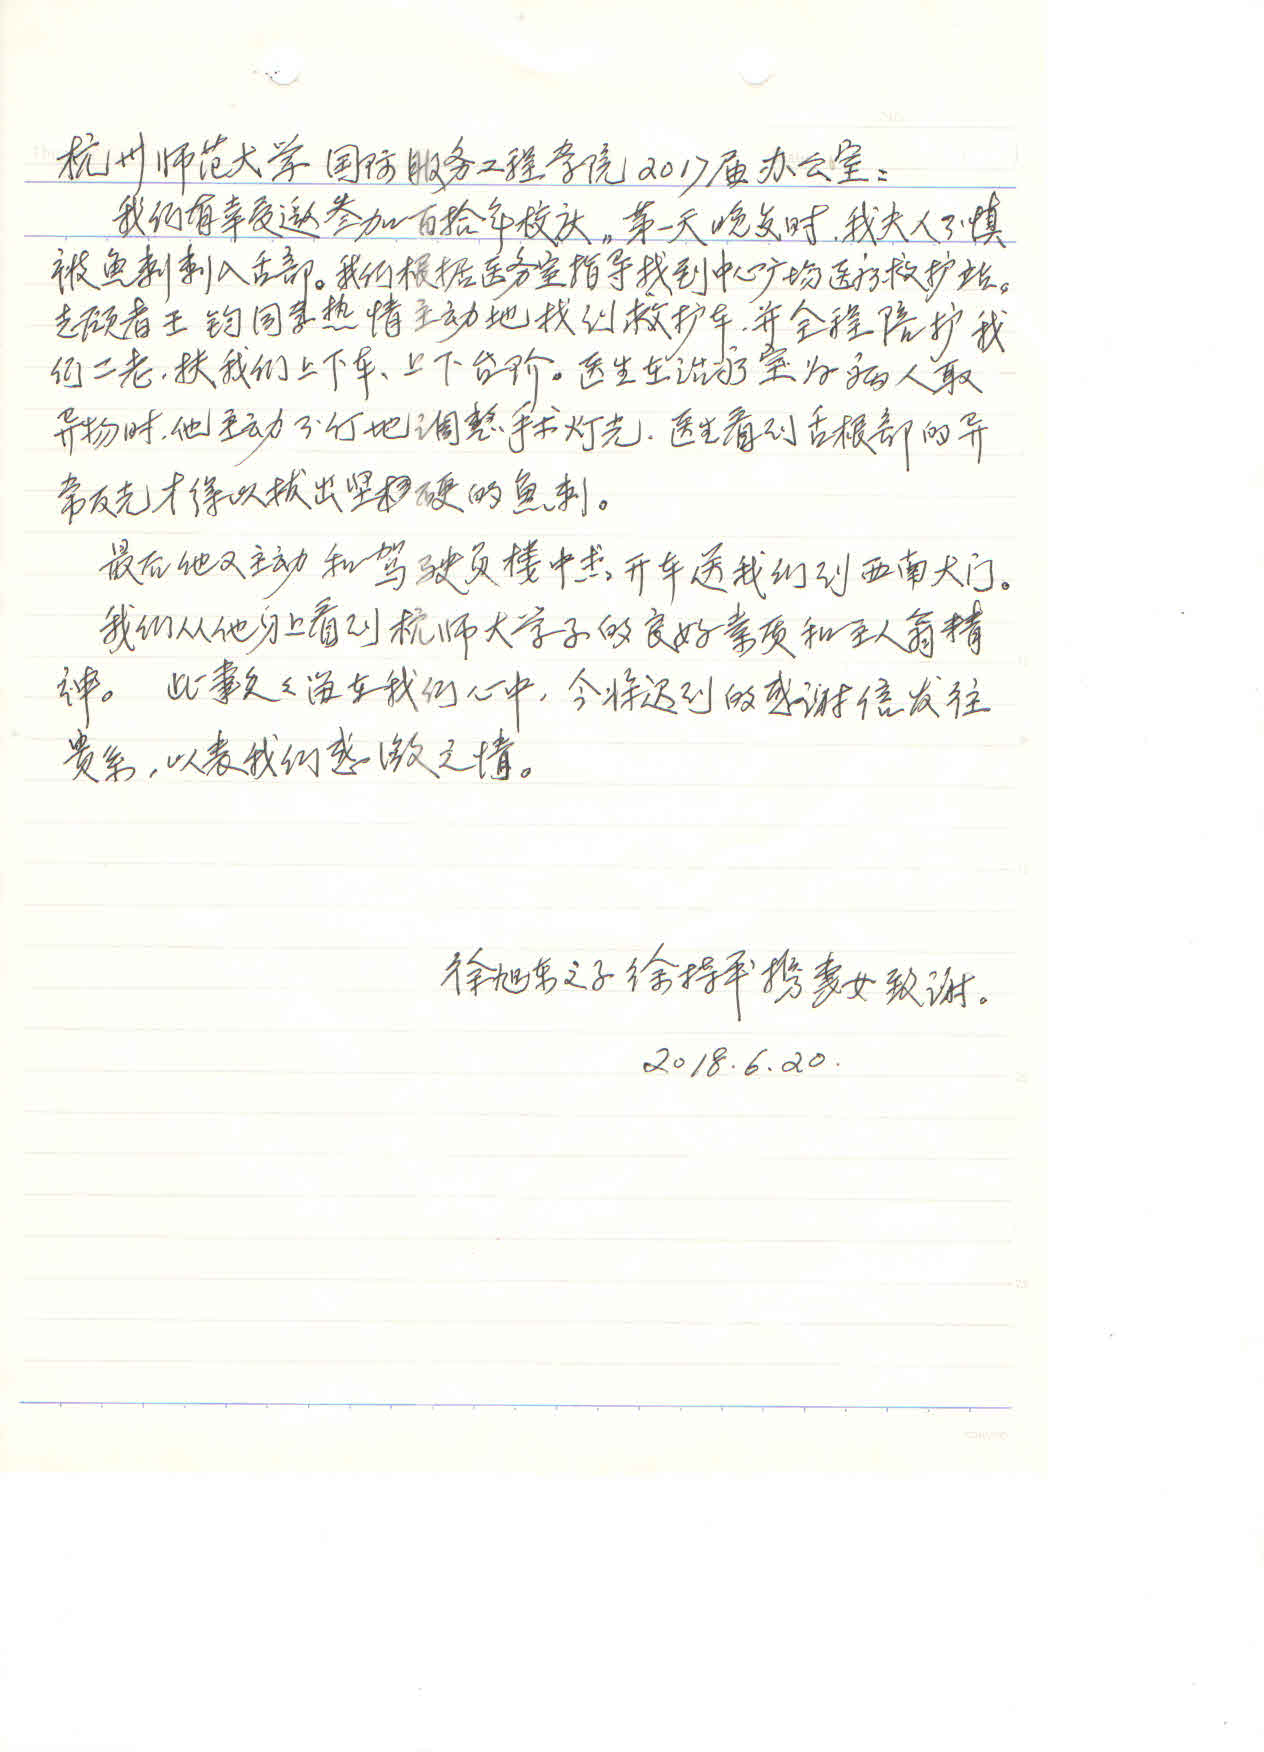 杭州师范大学国际服务工程学院2017届办公室：
我们有幸受邀参加百拾年校庆。第一天晚餐时，我夫人不慎
被鱼刺刺入舌部。我们根据医务室指导找到中心广场医疗救护站。
志愿者王钧同学热情主动地找到救护车，并全程陪护我
们二老，扶我们上下车、上下台阶。医生在治疗室为病人取
异物时，他主动不停地调整手术灯光，医生看到舌根部的异
常反光才得以拔出坚硬的鱼刺。
最后他又主动和驾驶员楼中杰，开车送我们到西南大门。
我们从他身上看到杭师大学子的良好素质和主人翁精
神。 此事久久留在我们心中，今将迟到的感谢信发往
贵系，以表我们感激之情。
徐旭东之子徐持平携妻女致谢。
2018.6.20.